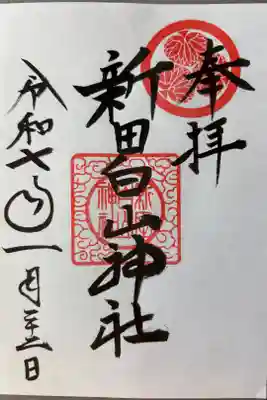 奉拝
新田白山神社
令和七年一月二十二日